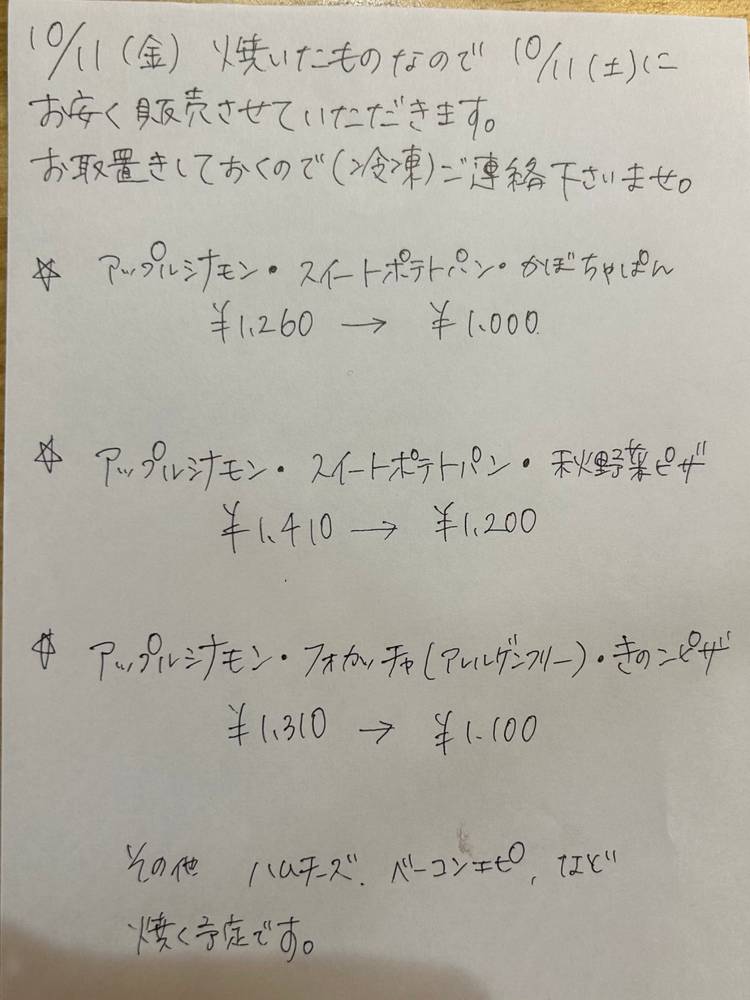 10/11(金) 焼いたものなので 10/11(土)に
お安く販売させていただきます。
お取置きしておくので(冷凍)ご連絡下さいませ。
☆ アップルシナモン・スイートポテトパン・かぼちゃぱん
¥1,260 → ¥1.000
☆ アップルシナモン・スイートポテトパン・秋野菜ピザ
¥1,410 → ¥1,200
☆ アップルシナモン・フォカッチャ(アレルゲンフリー)・きのこピザ
¥1,310 → ¥1.100
その他 ハムチーズ、ベーコンエピ、など
焼く予定です。